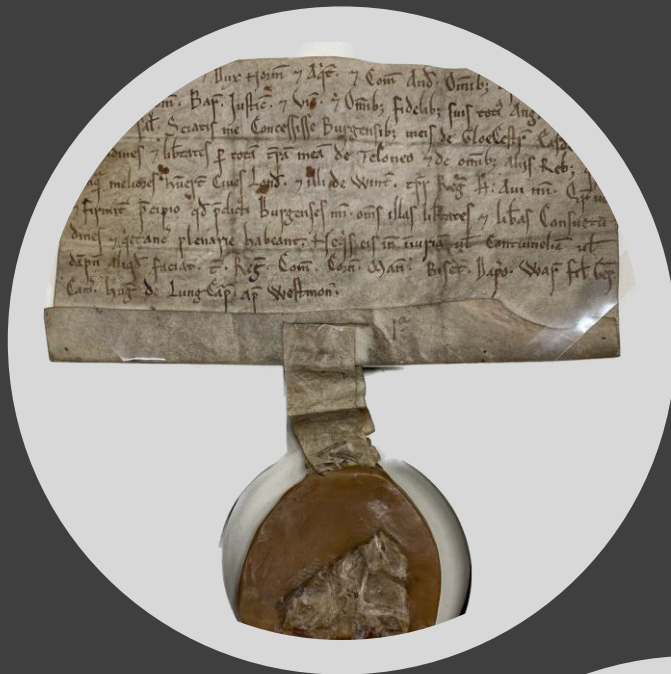 ⁊ Dux Norm̄ ⁊ Aq̄t. ⁊ Com̄ And̄. Omib;
Bar̄. Justic̄. ⁊ Vic̄. ⁊ Omib; fidelib; suis toti Angl
Sciatis me Concessisse Burgensib; meis de Gloecestr̄
⁊ lib̄tates ꝑ totā t̄rā meā de Teloneo ⁊ de omib; aliis Reb;
meliores hūer̄t Ciues Lond̄. ⁊ illi de Wint̄. tp̄r Reḡ H. Aui mī.
Firmit̄ p̄cipio qd̄ p̄dicti Burgenses mī. om̄s illas lib̄tates ⁊ lib̄as Consuetu
dines ⁊ plenarie habeant. Neq̄s eis in iniuria ul̄ Contumeliā ul̄
dāpn̄ aliqd̄ faciat. T. Reḡ. Com̄. Corn̄. Man̄. Biset. Dapo. War̄ fil̄
Cam̄. Huḡ de Lung Cāp. ap̄ Westmon̄.